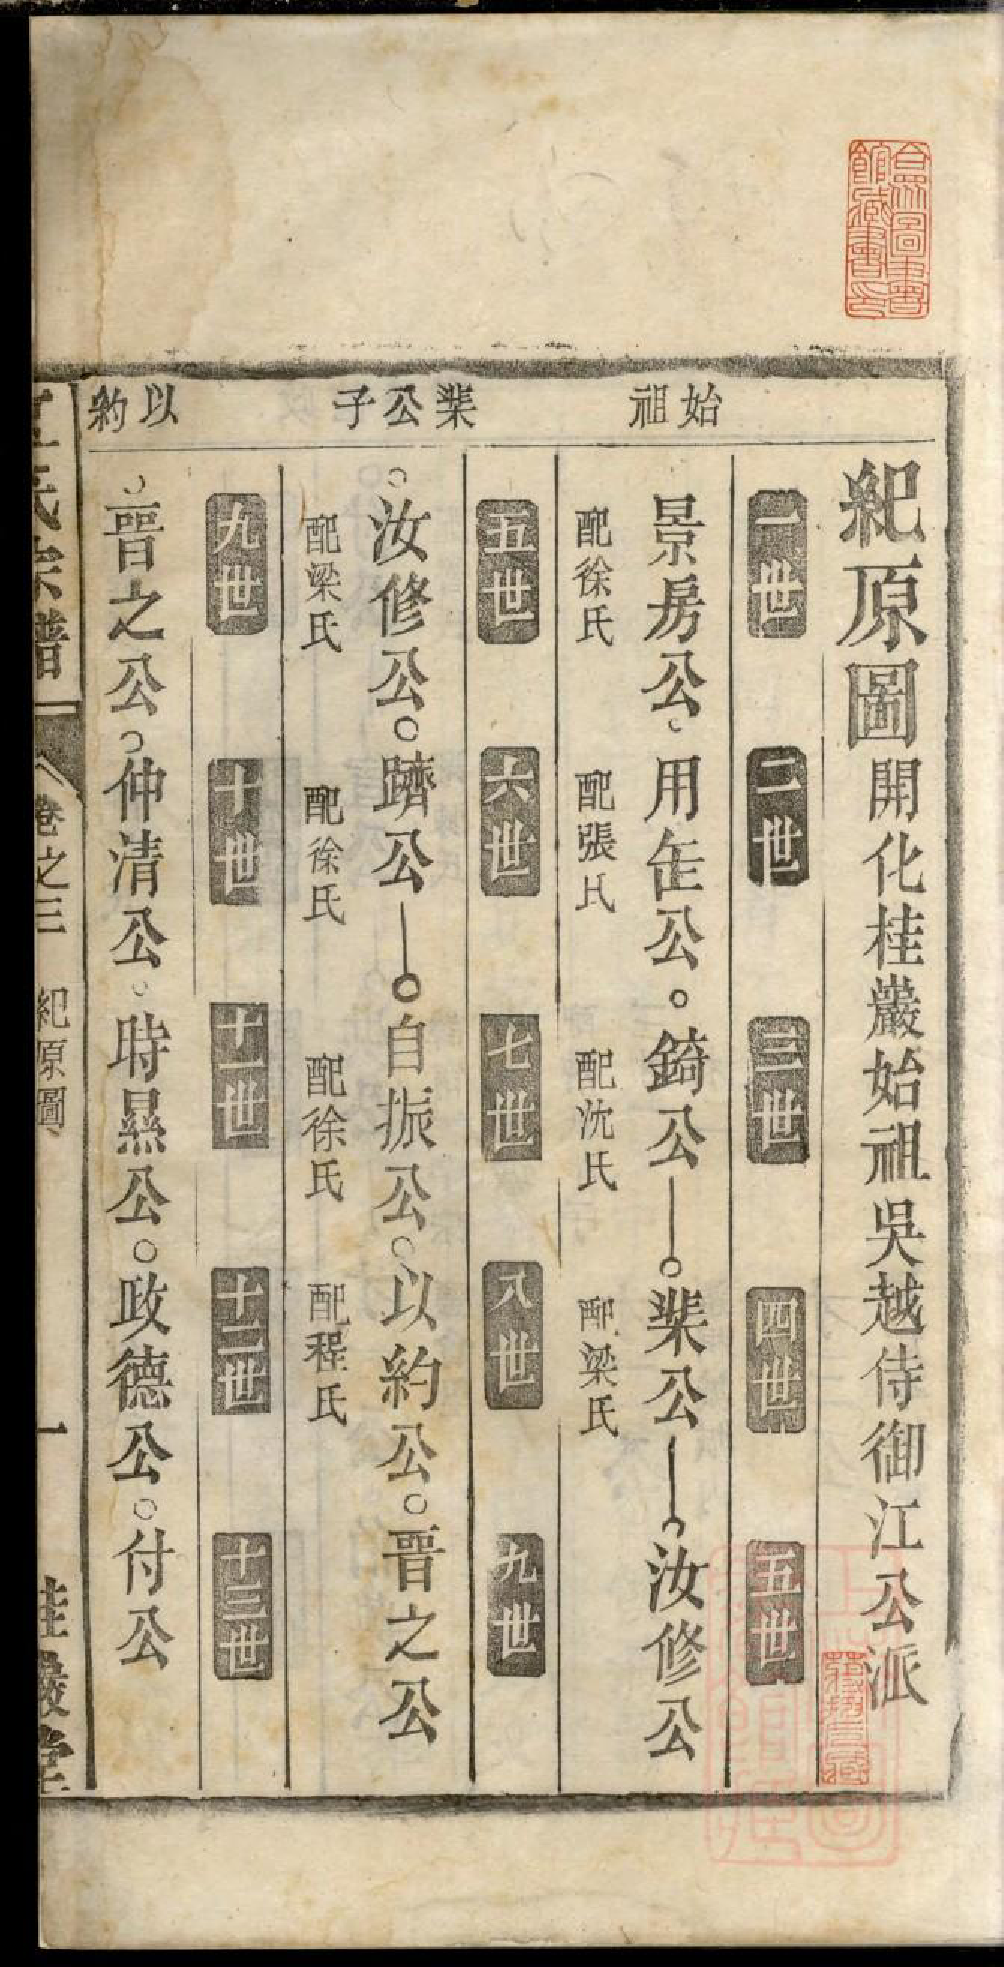 紀原圖開化桂巖始祖吳越侍御江公派
始祖
一世 二世 三世 四世 五世
景房公 用缶公 錡公 棐公 汝修公
配徐氏 配張氏 配沈氏 配梁氏
棐公子
五世 六世 七世 八世 九世
汝修公 躋公 自振公 以約公 晋之公
配梁氏 配徐氏 配徐氏 配程氏
以約
九世 十世 十一世 十二世 十三世
晋之公 仲清公 時㬎公 政德公 付公
江氏宗譜 卷之三 紀原圖 一 桂巖堂